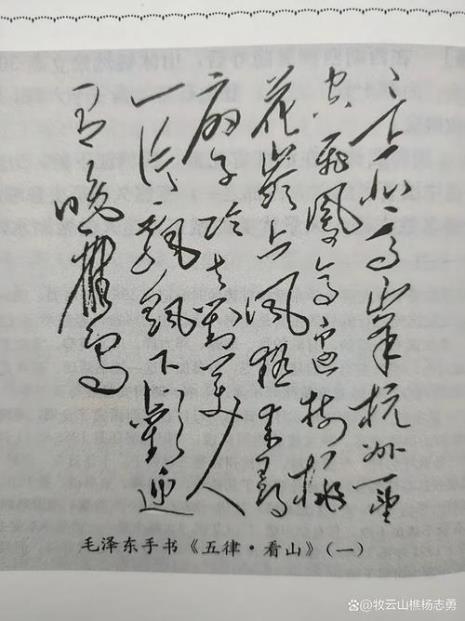 三上北高峰杭州一望
空飞凤亭边树桃
花岭上风热来寻
扇子冷去对美人
一片飘飖下欢迎
有晚鹰
毛泽东手书《五律·看山》(一)
@牧云山樵杨志勇